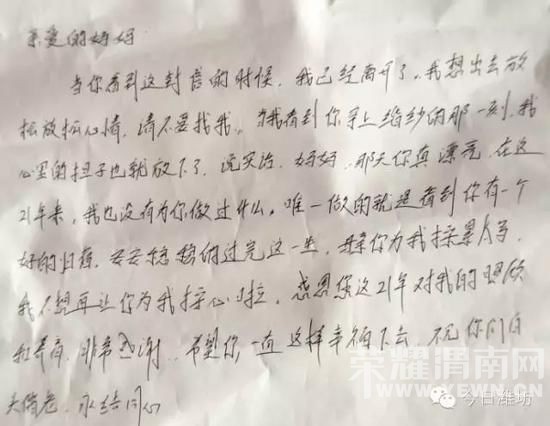 亲爱的妈妈
当你看到这封信的时候,我已经离开了,我想出去放
松放松心情,请不要找我。当我看到你穿上婚纱的那一刻,我
心里的担子也就放下了,说实话,妈妈,那天你真漂亮,在这
21年来,我也没有为你做过什么。唯一做的就是看到你有一个
好的归宿,安安稳稳的过完这一生,你为我操累
我不想再让你为我操心啦,感恩您这21年对我的照顾
和养育,非常感谢..希望你,一直这样幸福下去,祝你们白
头偕老,永结同心
荣耀渭南网
WWW.YEWN.CN
今日潍坊